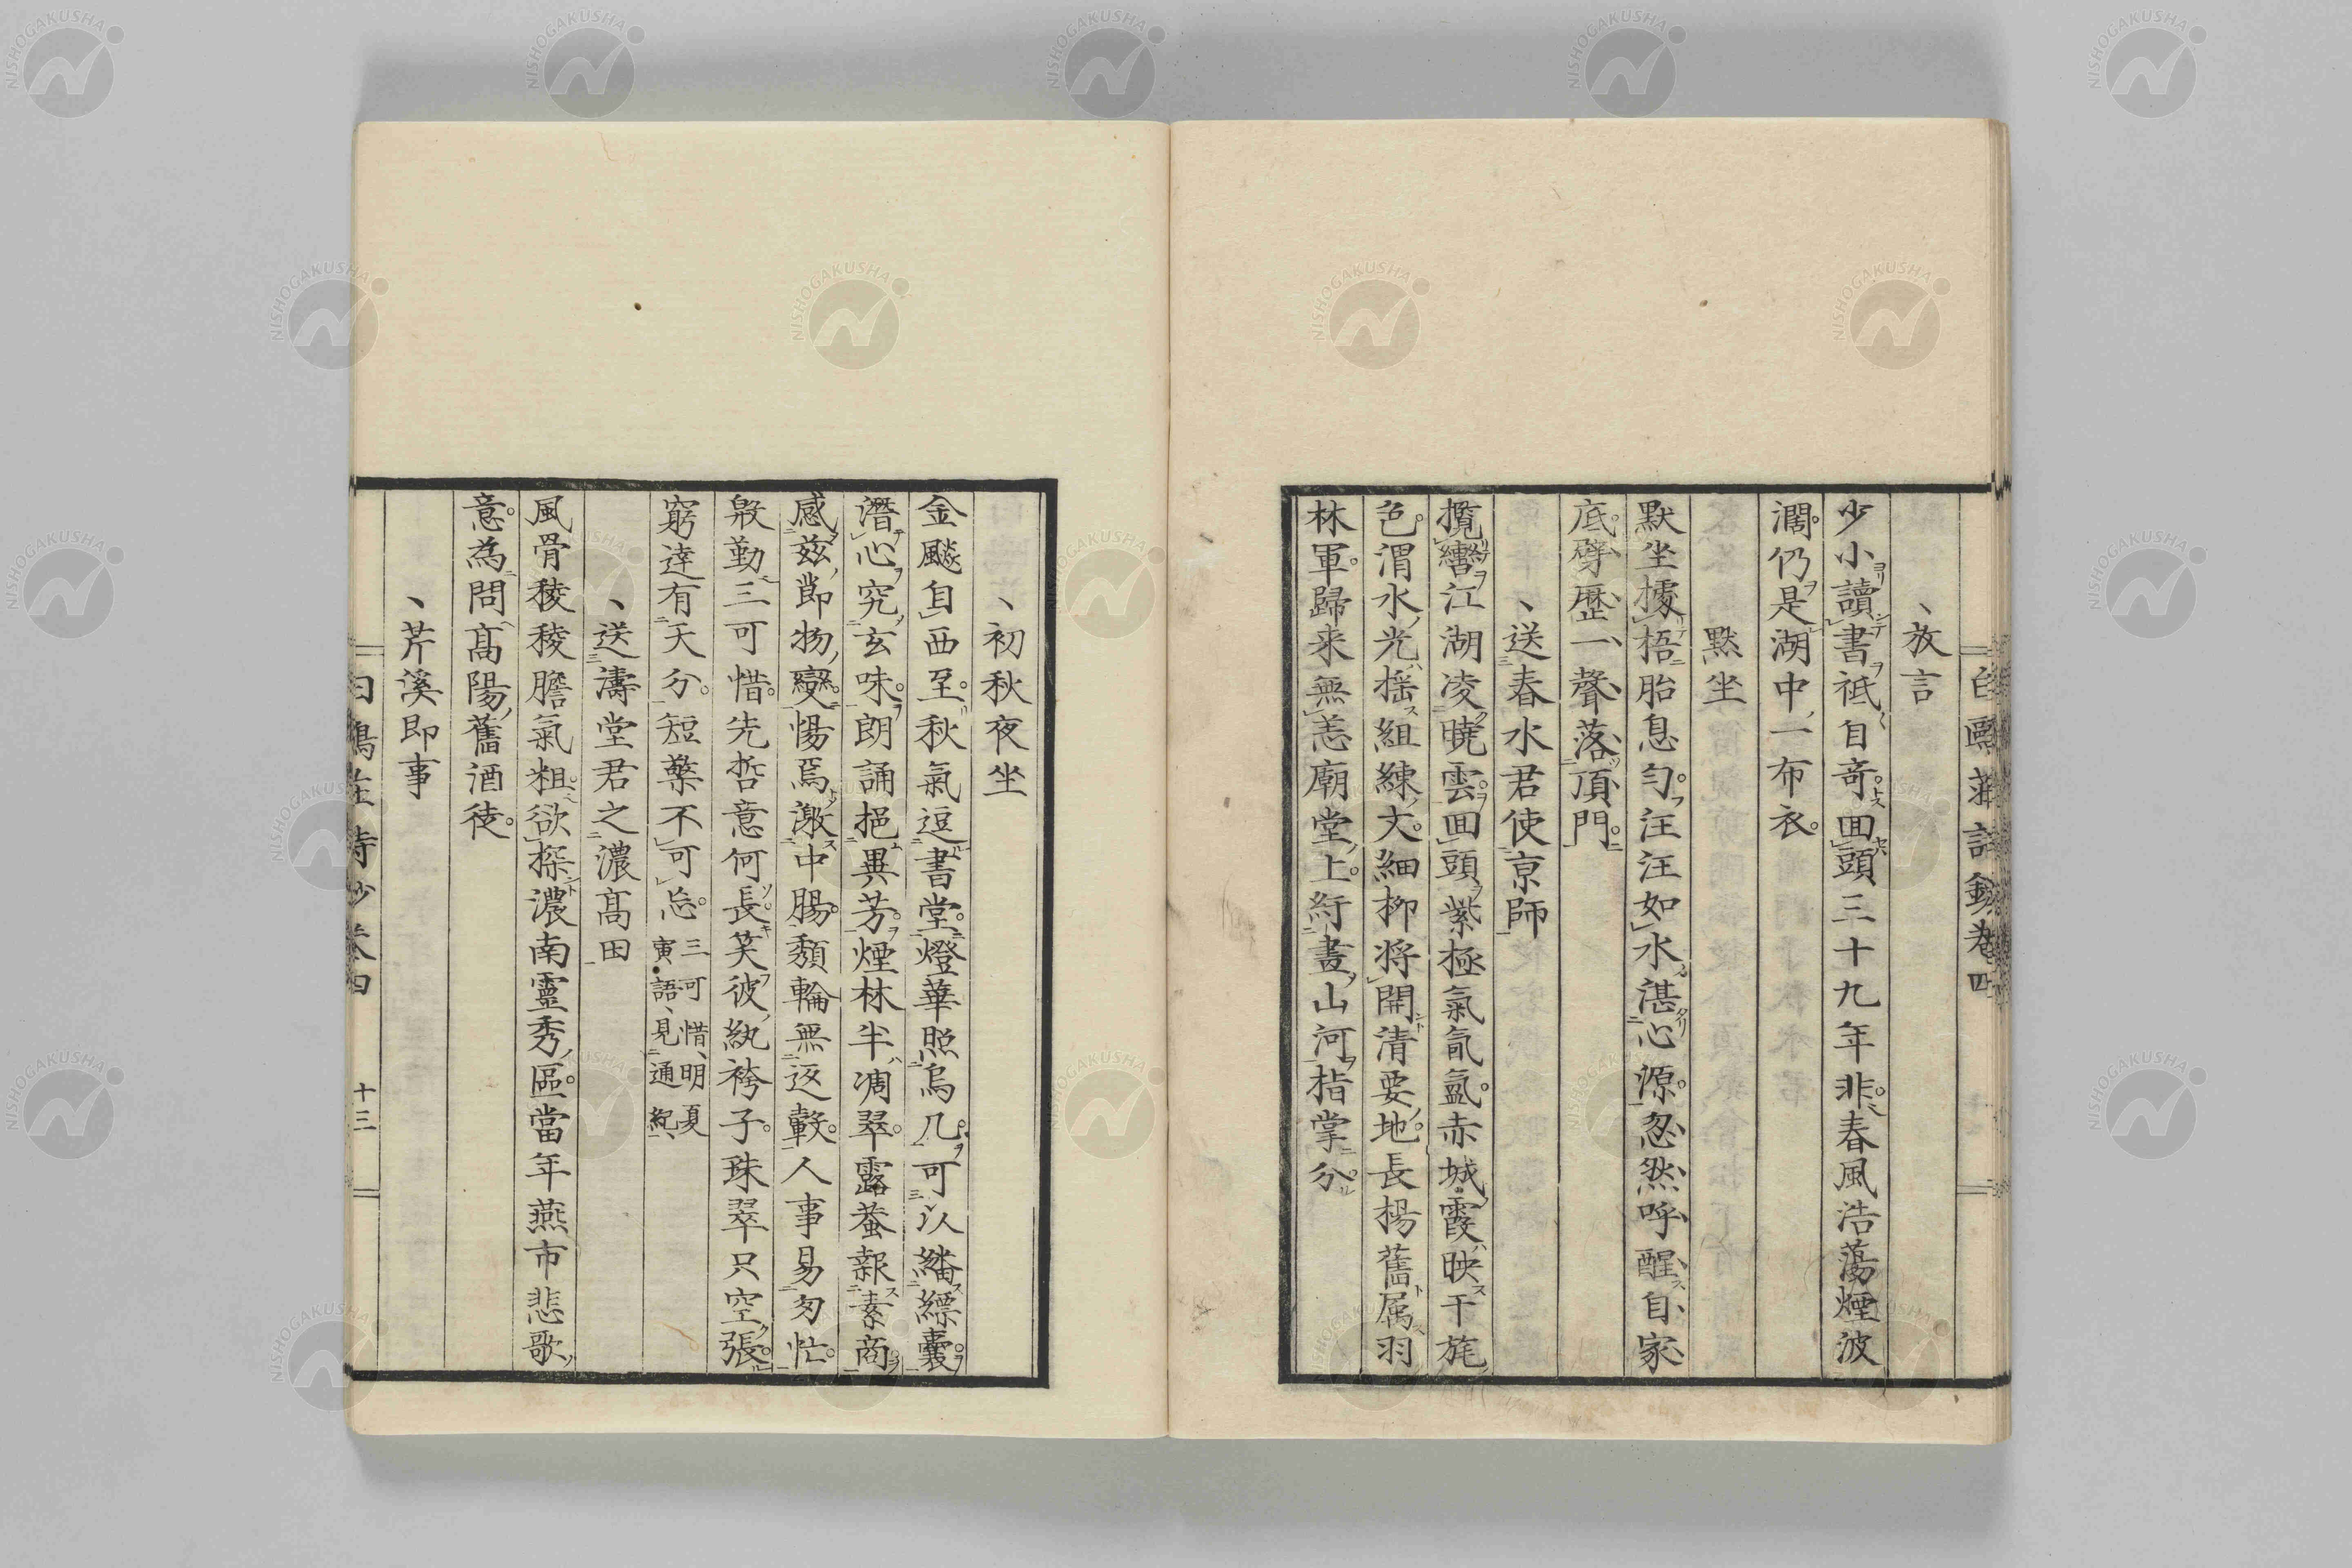 白鷗莊詩鈔卷四
放言
少小讀書祗自奇回頭三十九年非春風浩蕩煙波
濶仍是湖中一布衣
默坐
默坐據梧胎息勻汪汪如水湛心源忽然呼醒自家
底劈歷一聲落頂門
送春水君使京師
攬轡江湖凌曉雲回頭紫極氣氤氳赤城霞映干旄
色渭水光揺組練文細柳將開清要地長楊舊属羽
林軍歸来無恙廟堂上紆畫山河指掌分
初秋夜坐
金飈自西至秋氣逗書堂燈華照烏几可以繙縹囊
潛心究玄味朗誦挹異芳煙林半凋翠露蛬報素商
感茲節物變愓焉激中腸頽輪無返轂人事易匆忙
殷勤三可惜先哲意何長笑彼紈袴子珠翠只空張
窮達有天分短檠不可忘 三可惜明夏寅語見通紀
送濤堂君之濃髙田
風骨稜稜膽氣粗欲探濃南靈秀區當年燕市悲歌
意為問髙陽舊酒徒
芹溪即事
白鷗莊詩鈔卷四
十三
NISHOGAKUSHA